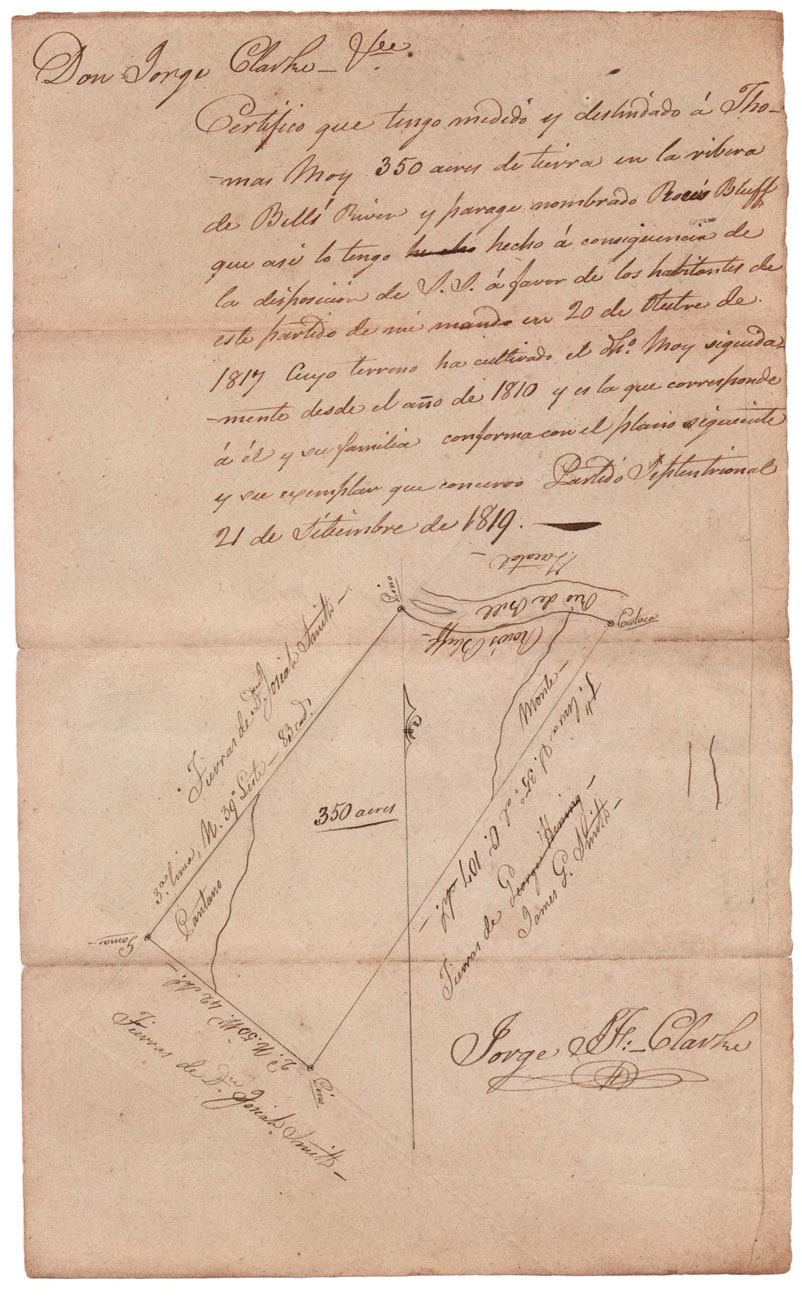 Don Jorge Clarke - Vee.
Certifico que tengo medido y deslindado á Tho-
-mas Moy 350 acres de tierra en la ribera
de Bells River y parage nombrado Roes's Bluff
que asi lo tengo hecho á consiguencia de
la disposición de S.S. á favor de los habitantes de
este partido de mi mando en 20 de Ottre de
1817 Cuyo terreno ha cultivado el dho. Moy siguida-
-mente desde el año de 1810 y es la que corresponde
á él y su familia conforma con el plano siguiente
y su exemplar que concervo Partido Septentrional
21 de Setiembre de 1819. —
Pino
Rio de Bell
Roes's Bluff -
Tierras de Dn. Josiah Smith -
3a. linea, N. 39° Leste - 83 cads.
350 acres
Monte -
1a. linea S. 35° al O. 107 cds. -
Tierras de George
James G. Smith -
Pantano
2a. N. 50° W. 42 cds. -
Tierras de Dn. Josiah Smith -
Pino
Jorge J. F. - Clarke